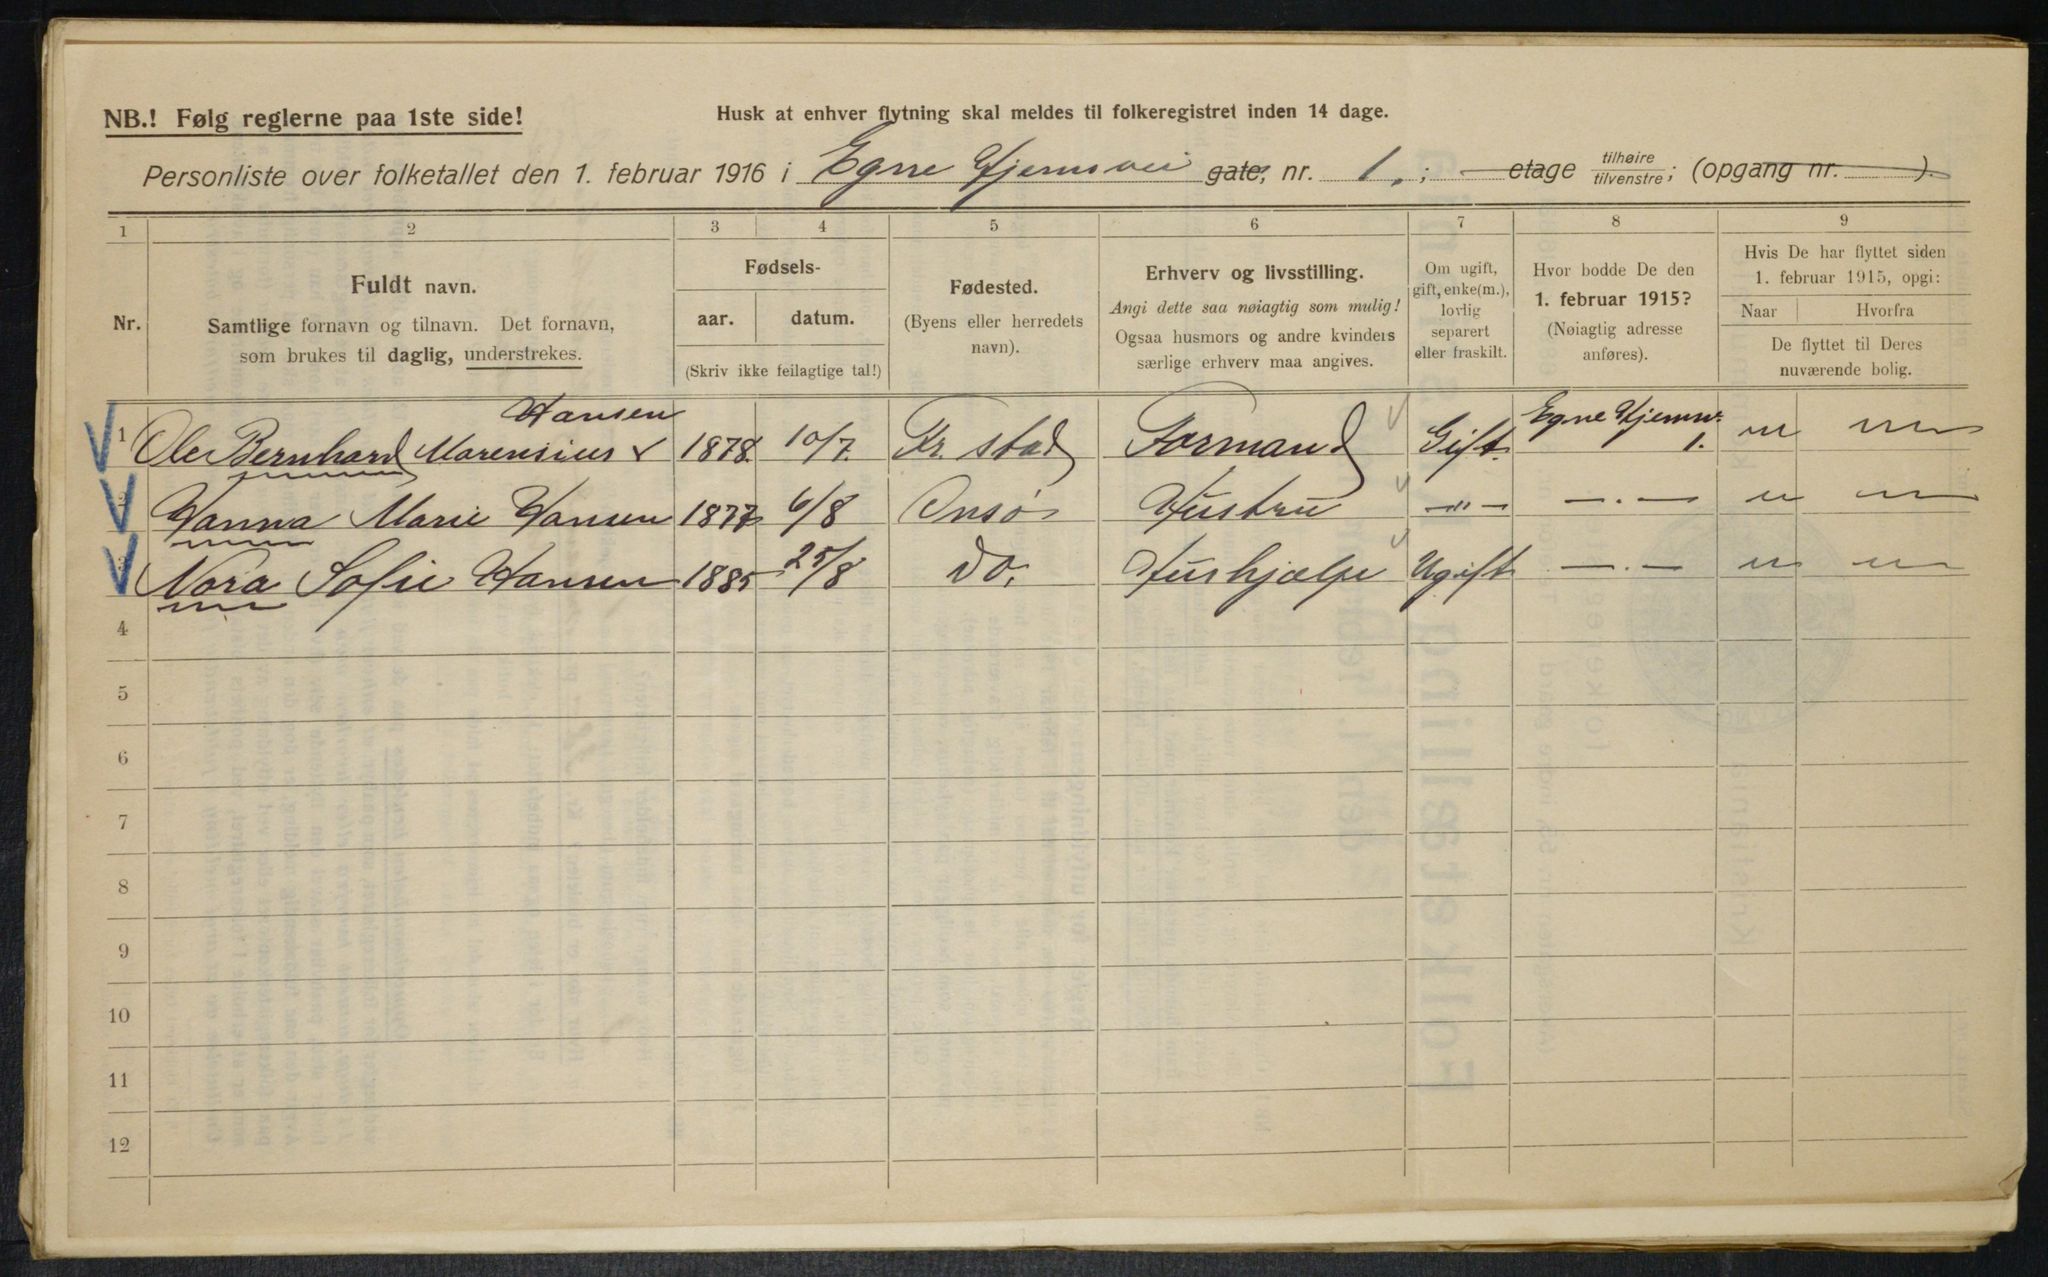 NB.! Følg reglerne paa 1ste side!
Husk at enhver flytning skal meldes til folkeregistret inden 14 dage.
Personliste over folketallet den 1. februar 1916 i Egne Hjemsvei gate, nr. 1. ; — etage tilhøire tilvenstre; (opgang nr. ).
1 2 3 4 5 6 7 8 9
Nr.
Fuldt navn.
Samtlige fornavn og tilnavn. Det fornavn,
som brukes til daglig, understrekes.
Fødsels-
aar. datum.
(Skriv ikke feilagtige tal!)
Fødested.
(Byens eller herredets
navn).
Erhverv og livsstilling.
Angi dette saa nøiagtig som mulig!
Ogsaa husmors og andre kvinders
særlige erhverv maa angives.
Om ugift,
gift, enke(m.),
lovlig
separert
eller fraskilt.
Hvor bodde De den
1. februar 1915?
(Nøiagtig adresse
anføres).
Hvis De har flyttet siden
1. februar 1915, opgi:
Naar Hvorfra
De flyttet til Deres
nuværende bolig.
Hansen
1 Ole Bernhard Marensius 1878. 10/7. Fr. stad Formand Gift. Egne Hjemsv. 1. " "
2 Hanna Marie Hansen 1877 6/8 Onsø Hustru —"— —.— " "
3 Nora Sofie Hansen 1885 25/8 Do. Hushjælp Ugift —.— " "
4
5
6
7
8
9
10
11
12